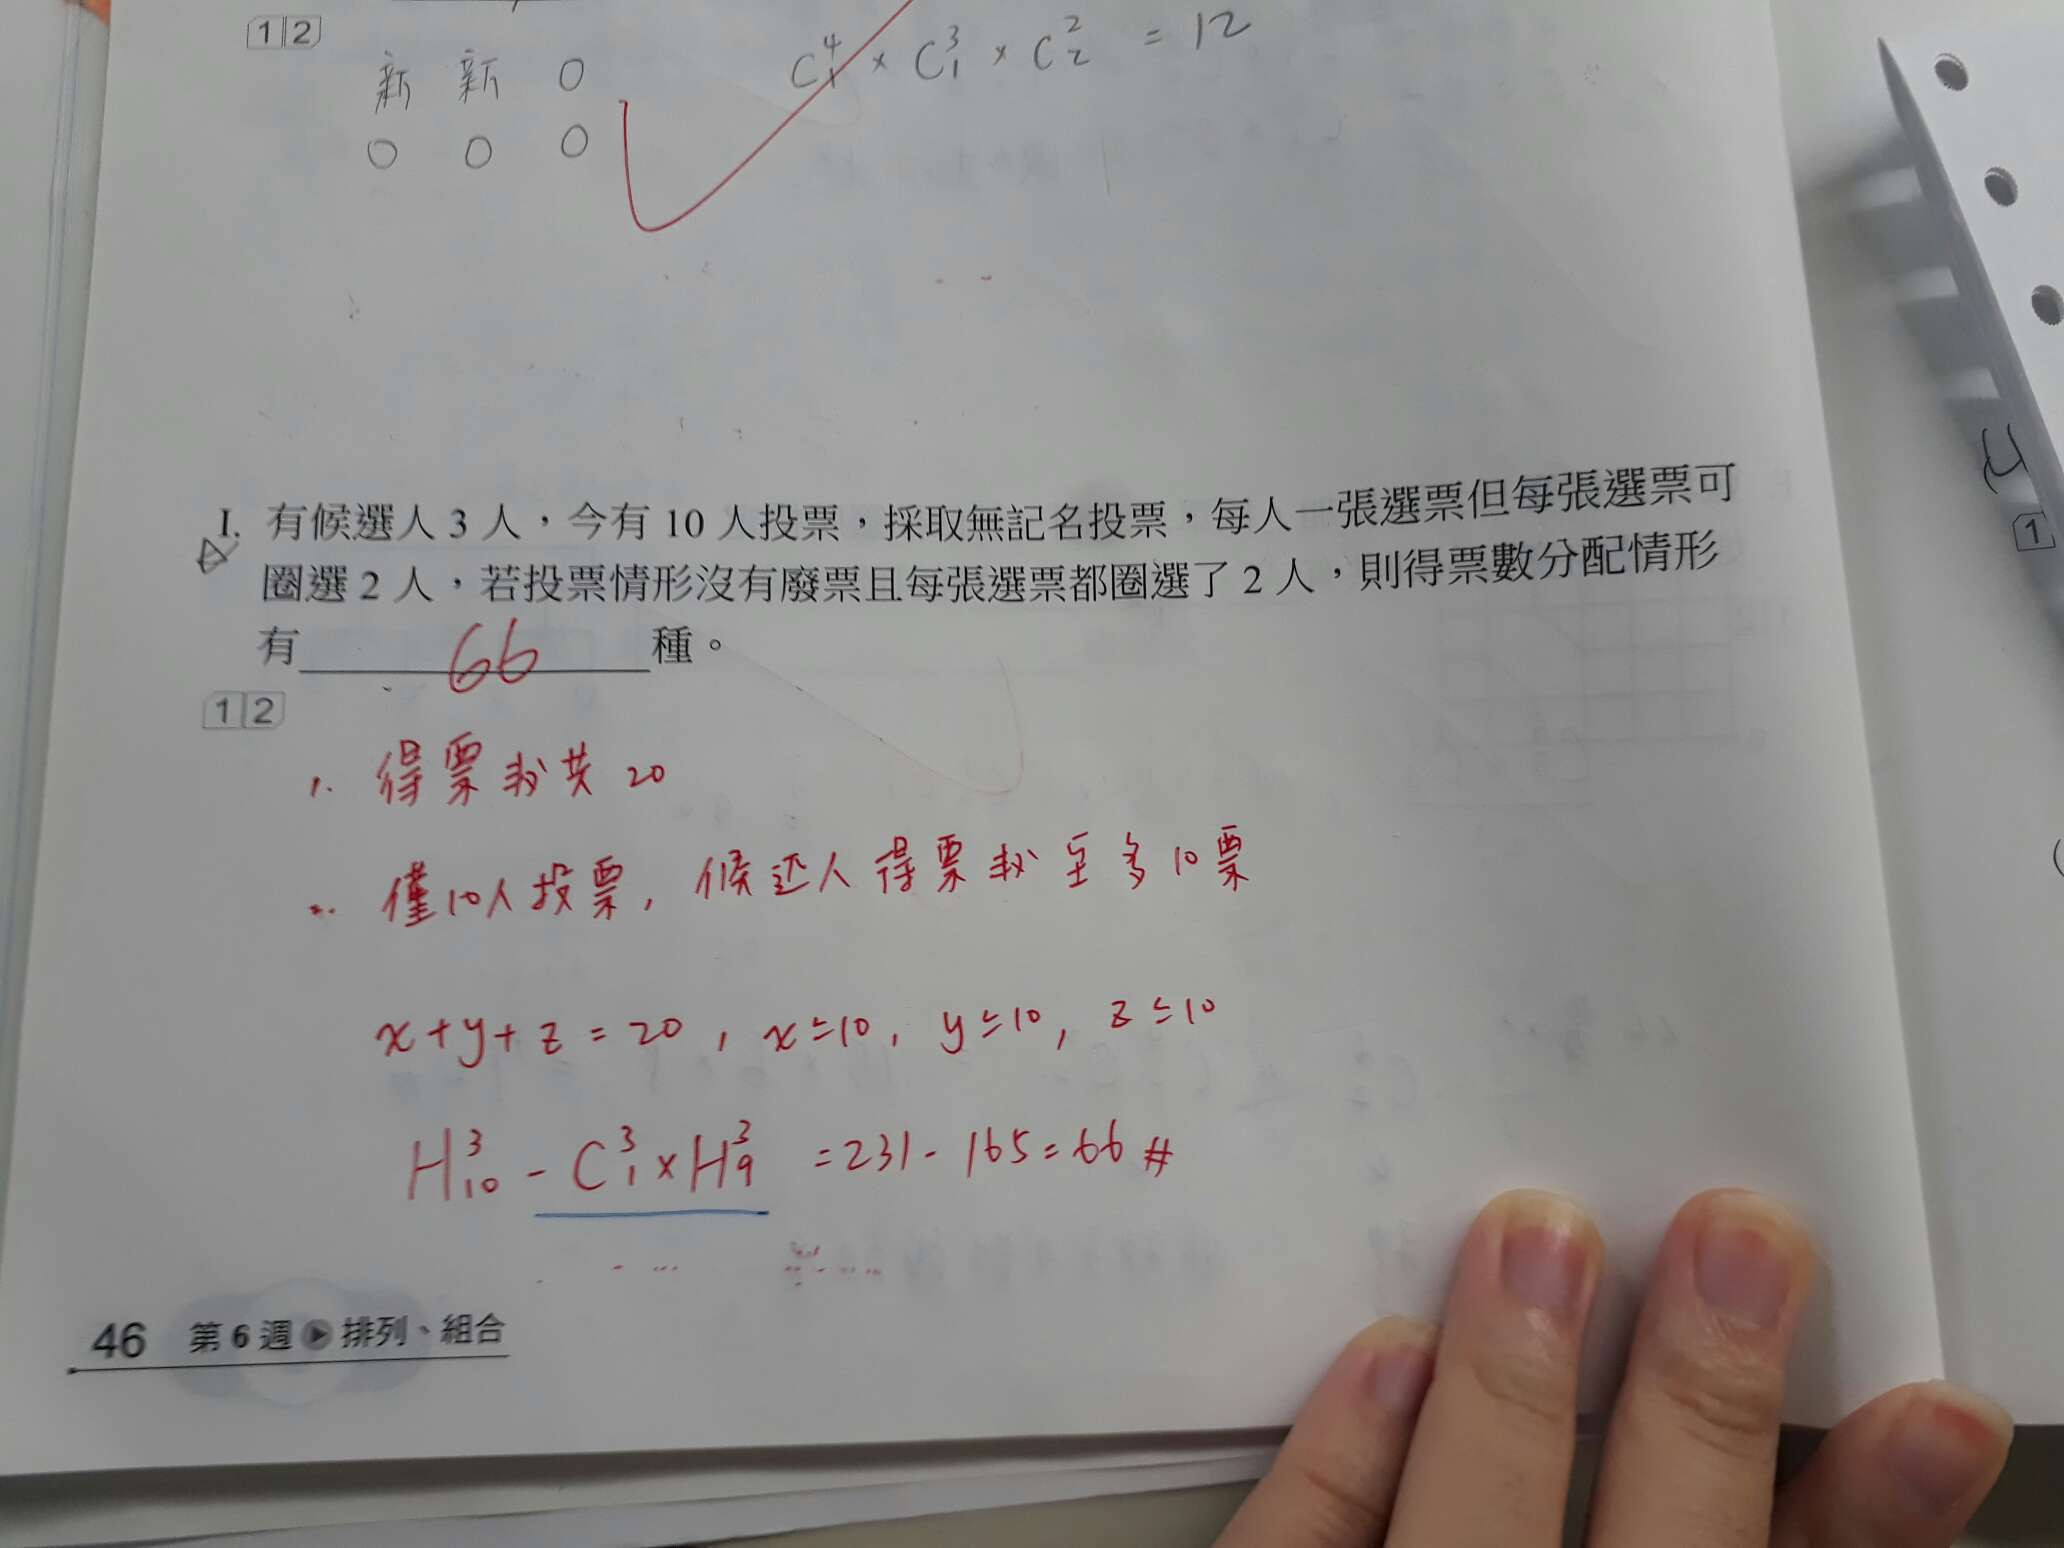 12
新 新 O C⁴₁ × C³₁ × C²₂ = 12
O O O
I. 有候選人 3 人，今有 10 人投票，採取無記名投票，每人一張選票但每張選票可
圈選 2 人，若投票情形沒有廢票且每張選票都圈選了 2 人，則得票數分配情形
有 66 種。
12
1. 得票数共 20
2. 僅10人投票, 候选人得票数至多10票
x+y+z=20, x≤10, y≤10, z≤10
H³₁₀ - C³₁×H³₉ =231-165=66#
46 第 6 週 排列、組合
1